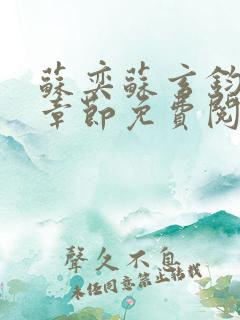 蘇奕蘇言鈞
章節免費閱
聲久不息
未经同意禁止转载